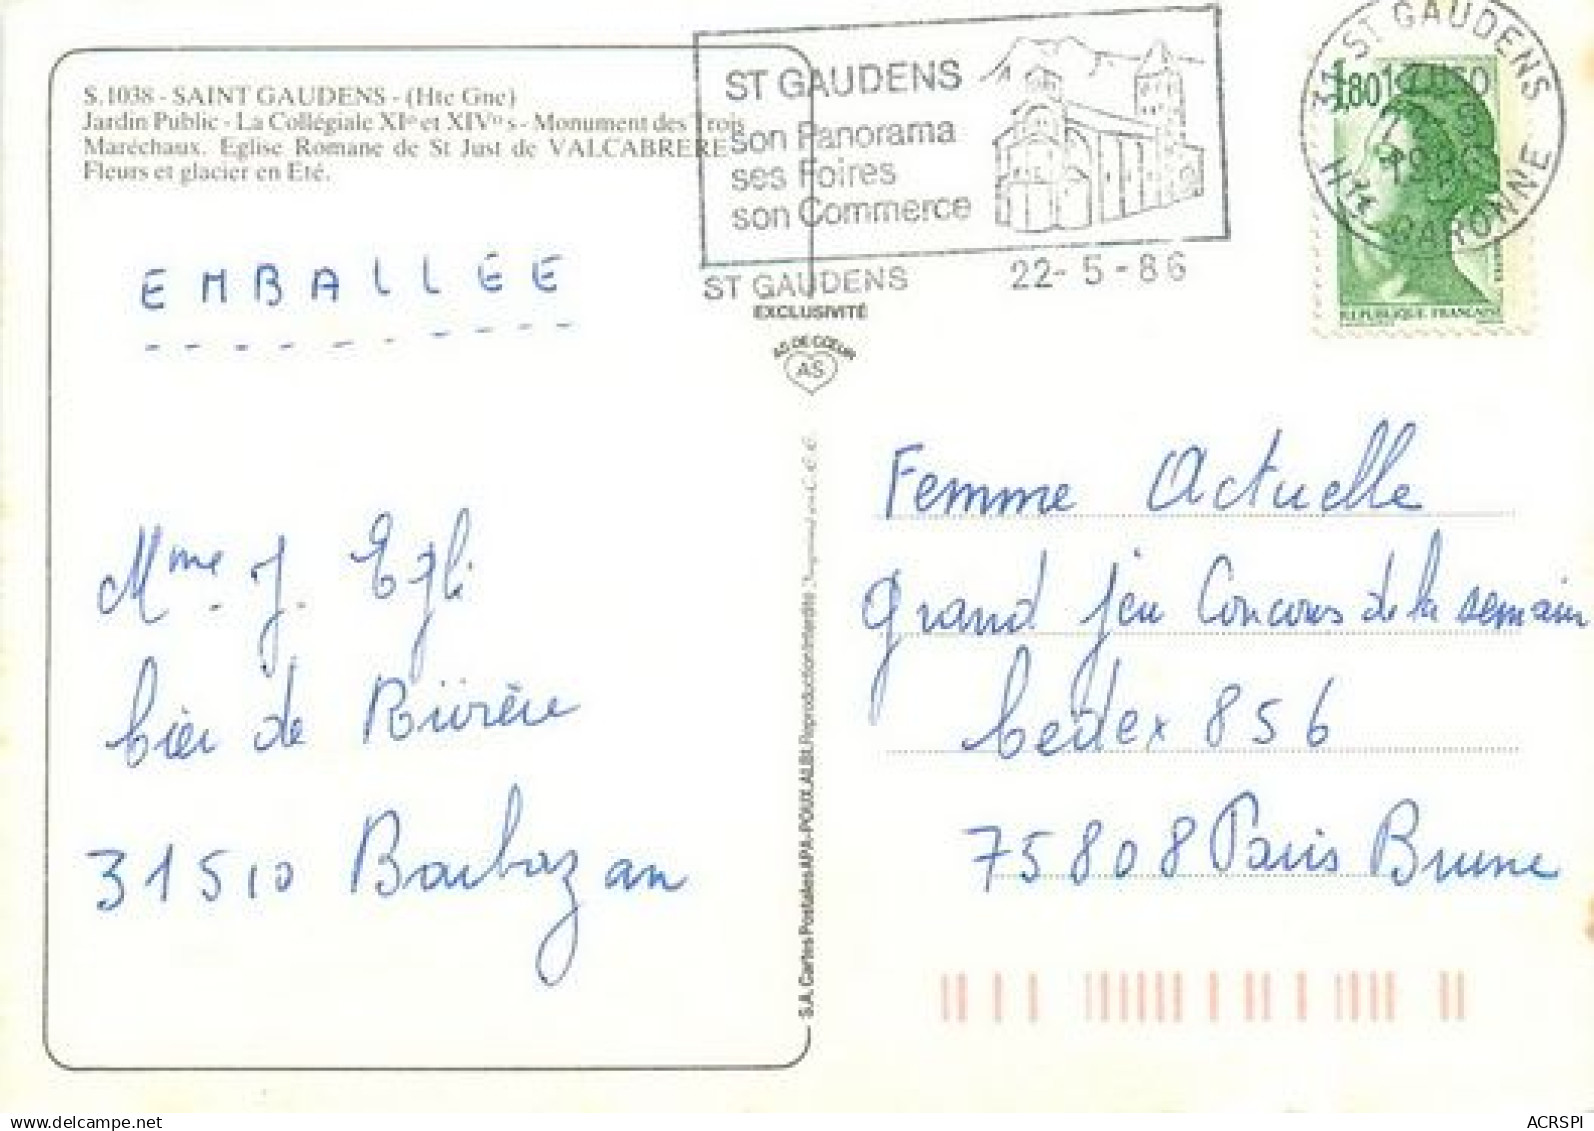 S.1038 - SAINT GAUDENS - (Hte Gne)
Jardin Public - La Collégiale XIe et XIVe s - Monument des Trois
Maréchaux. Eglise Romane de St Just de VALCABRERE
Fleurs et glacier en Eté.
ST GAUDENS
son Panorama
ses Foires
son Commerce
ST GAUDENS 22-5-86
31 ST GAUDENS
Hte GARONNE
1,80
REPUBLIQUE FRANÇAISE
EXCLUSIVITÉ
AS DE CŒUR
AS
EMBALLÉE
Mme J. Egli
bier de Rivière
31510 Barbazan
S.A. Cartes Postales APA-POUX, ALBI. Reproduction Interdite
Femme Actuelle
Grand Jeu Concours de la semaine
Cedex 856
75808 Paris Brune
www.delcampe.net
ACRSPI